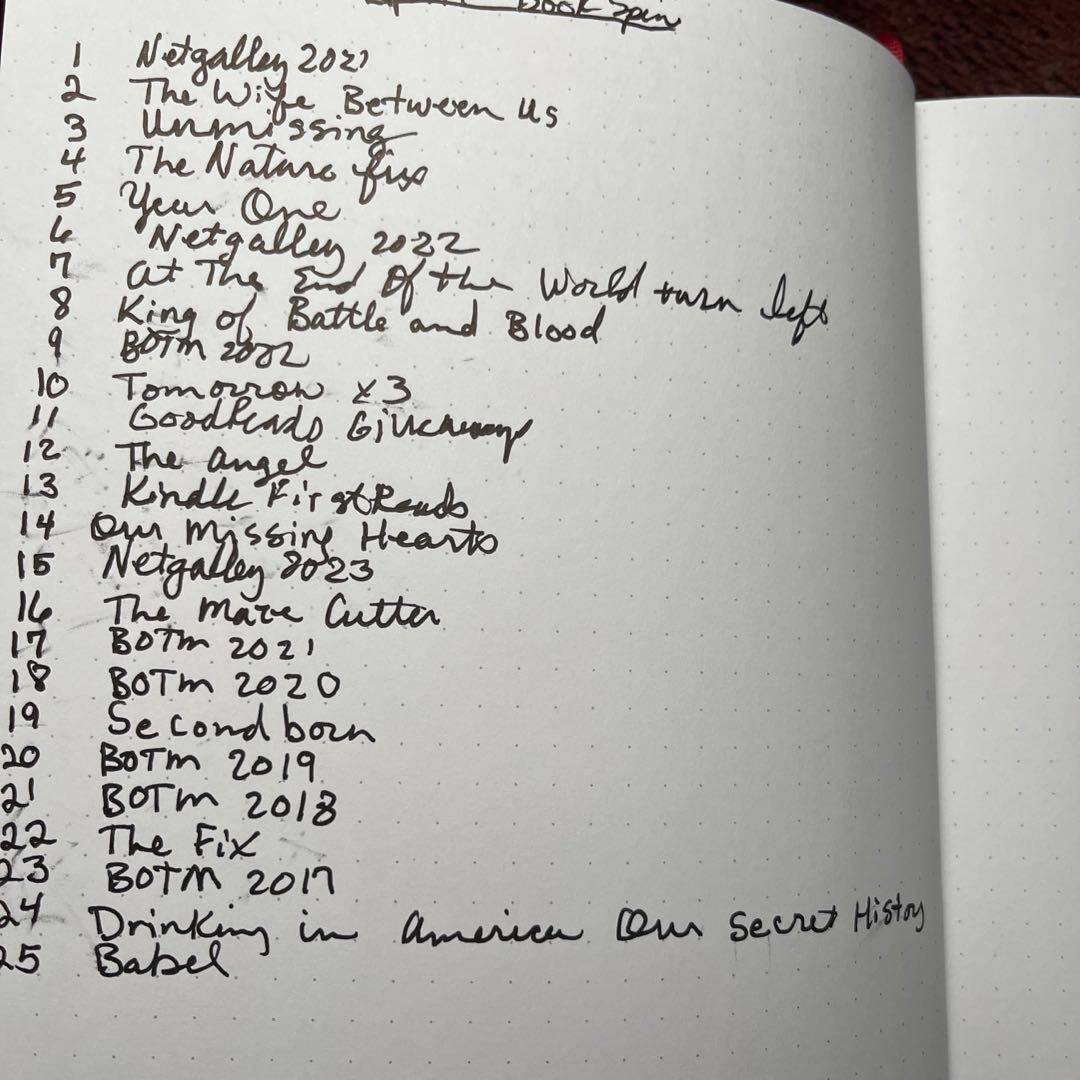 Book Spin
1 Netgalley 2021
2 The Wife Between Us
3 Unmissing
4 The Nature fix
5 Year One
6 Netgalley 2022
7 at The End Of the World turn left
8 King of Battle and Blood
9 BOTM 2022
10 Tomorrow x3
11 GoodReads Giveaways
12 The angel
13 Kindle First Reads
14 Our Missing Hearts
15 Netgalley 2023
16 The Maze Cutter
17 BOTM 2021
18 BOTM 2020
19 Second born
20 BOTM 2019
21 BOTM 2018
22 The Fix
23 BOTM 2017
24 Drinking in america Our Secret History
25 Babel